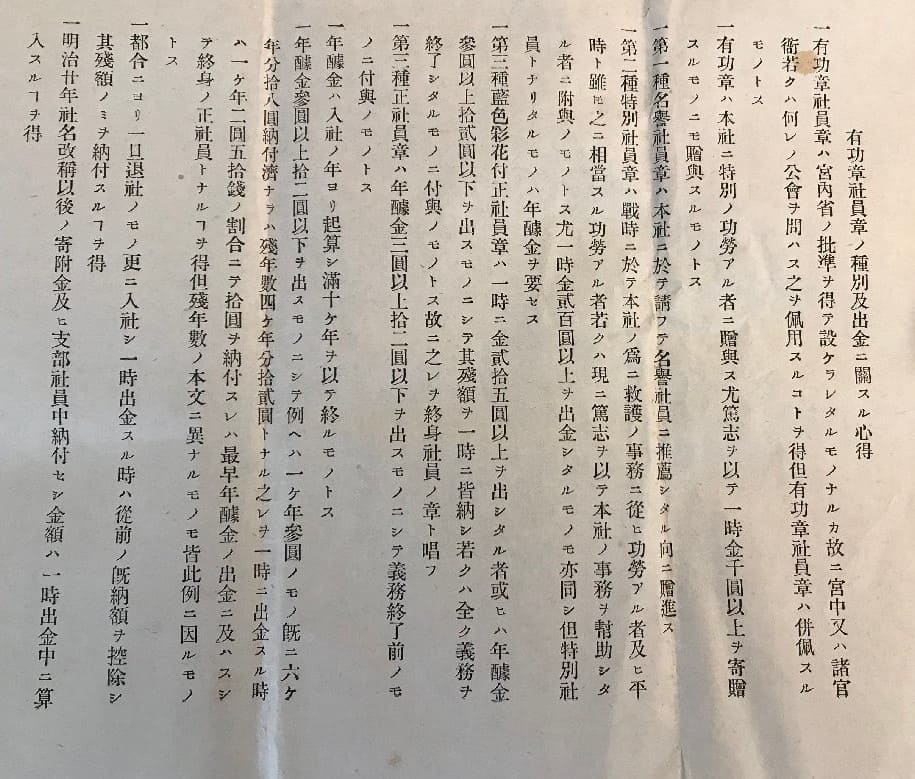 有功章社員章ノ種別及出金ニ關スル心得
一有功章社員章ハ宮內省ノ批準ヲ得テ設ケラレタルモノナルカ故ニ宮中又ハ諸官
衙若クハ何レノ公會ヲ問ハス之ヲ佩用スルコトヲ得但有功章社員章ハ併佩スル
モノトス
一有功章ハ本社ニ特別ノ功勞アル者ニ贈與ス尤篤志ヲ以テ一時金千圓以上ヲ寄贈
スルモノニモ贈與スルモノトス
一第一種名譽社員章ハ本社ニ於テ請フテ名譽社員ニ推薦シタル向ニ贈進ス
一第二種特別社員章ハ戰時ニ於テ本社ノ爲ニ救護ノ事務ニ從ヒ功勞アル者及ヒ平
時ト雖モ之ニ相當スル功勞アル者若クハ現ニ篤志ヲ以テ本社ノ事務ヲ幇助シタ
ル者ニ附與ノモノトス尤一時金貳百圓以上ヲ出金シタルモノモ亦同シ但特別社
員トナリタルモノハ年醵金ヲ要セス
一第三種藍色彩花付正社員章ハ一時ニ金貳拾五圓以上ヲ出シタル者或ヒハ年醵金
參圓以上拾貳圓以下ヲ出スモノニシテ其殘額ヲ一時ニ皆納シ若クハ全ク義務ヲ
終了シタルモノニ付與ノモノトス故ニ之レヲ終身社員ノ章ト唱フ
一第三種正社員章ハ年醵金三圓以上拾二圓以下ヲ出スモノニシテ義務終了前ノモ
ノニ付與ノモノトス
一年醵金ハ入社ノ年ヨリ起算シ滿十ケ年ヲ以テ終ルモノトス
一年醵金參圓以上拾二圓以下ヲ出スモノニシテ例ヘハ一ケ年參圓ノモノ旣ニ六ケ
年分拾八圓納付濟ナラハ殘年數四ケ年分拾貳圓トナル之レヲ一時ニ出金スル時
ハ一ケ年二圓五拾錢ノ割合ニテ拾圓ヲ納付スレハ最早年醵金ノ出金ニ及ハスシ
テ終身ノ正社員トナルヿヲ得但殘年數ノ本文ニ異ナルモノモ皆此例ニ因ルモノ
トス
一都合ニヨリ一旦退社ノモノ更ニ入社シ一時出金スル時ハ從前ノ旣納額ヲ控除シ
其殘額ノミヲ納付スルヿヲ得
一明治廿年社名改稱以後ノ寄附金及ヒ支部社員中納付セシ金額ハ一時出金中ニ算
入スルヿヲ得